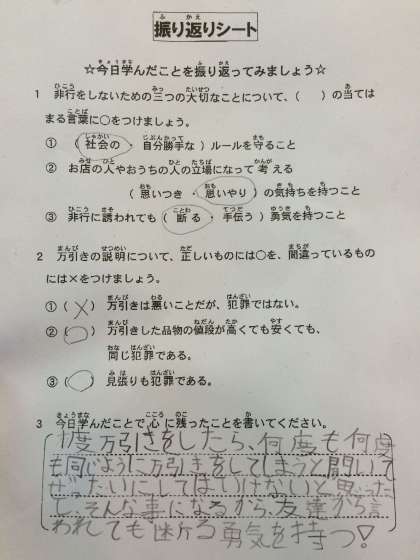 振り返りシート
☆今日学んだことを振り返ってみましょう☆
1 非行をしないための三つの大切なことについて、( )の当ては
まる言葉に○をつけましょう。
① (社会の・自分勝手な)ルールを守ること
② お店の人やおうちの人の立場になって考える
(思いつき・思いやり)の気持ちを持つこと
③ 非行に誘われても(断る・手伝う)勇気を持つこと
2 万引きの説明について、正しいものには○を、間違っているもの
には×をつけましょう。
①(×)万引きは悪いことだが、犯罪ではない。
②(○)万引きした品物の値段が高くても安くても、
同じ犯罪である。
③(○)見張りも犯罪である。
3 今日学んだことで心に残ったことを書いてください。
1度万引きをしたら、何度も何度
も同じように万引きをしてしまうと聞いて
ぜったいにしてはいけないと思った
し、そんな事になるから、友達から言
われても断る勇気を持つ!